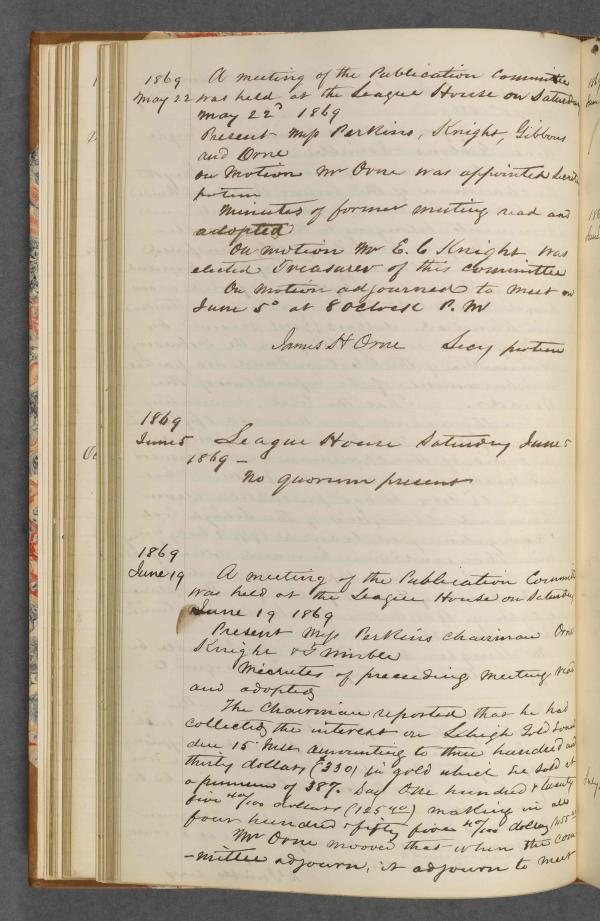 1869 A meeting of the Publication Committee
May 22 was held at the League House on Saturday
May 22d 1869
Present Mess Perkins, Knight, Gibbons
and Orne
on Motion Mr Orne was appointed Secreta
protem
Minutes of former meeting read and
adopted
On motion Mr E. C Knight was
elected Treasurer of this committee
On motion adjourned to meet on
June 5o at 8 Oclock P. M
James H Orne Secy protem
1869
June 5 League House Saturday June 5
1869 –
No quorum present
1869
June 19 A meeting of the Publication Committ
was held at the League House on Saturday
June 19 1869
Present Mess Perkins chairman Orne
Knight &
Minutes of preceeding meeting read
and adopted
The Chairman reported that he had
collected the interest on Lehigh Gold Loan
due 15 Inst amounting to three hundred and
thirty dollars ($330) in gold which he sold at
a premium of 38%. Say One hundred & twenty
five 40/100 dollars (125 40) making in all
four hundred & fifty five 40/100 dollars (455 40
Mr Orne mooved that when the com
-mittee adjourn, it adjourn to meet